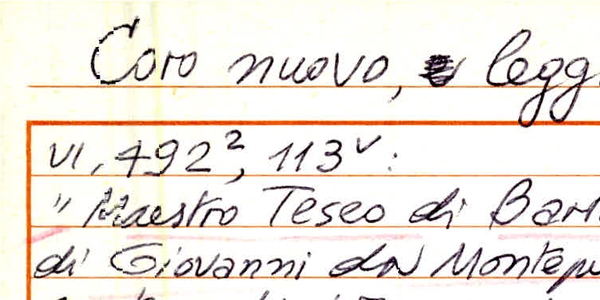 Coro nuovo, legg
VI, 492², 113ᵛ:
"Maestro Teseo di Bart
di Giovanni da Montepu